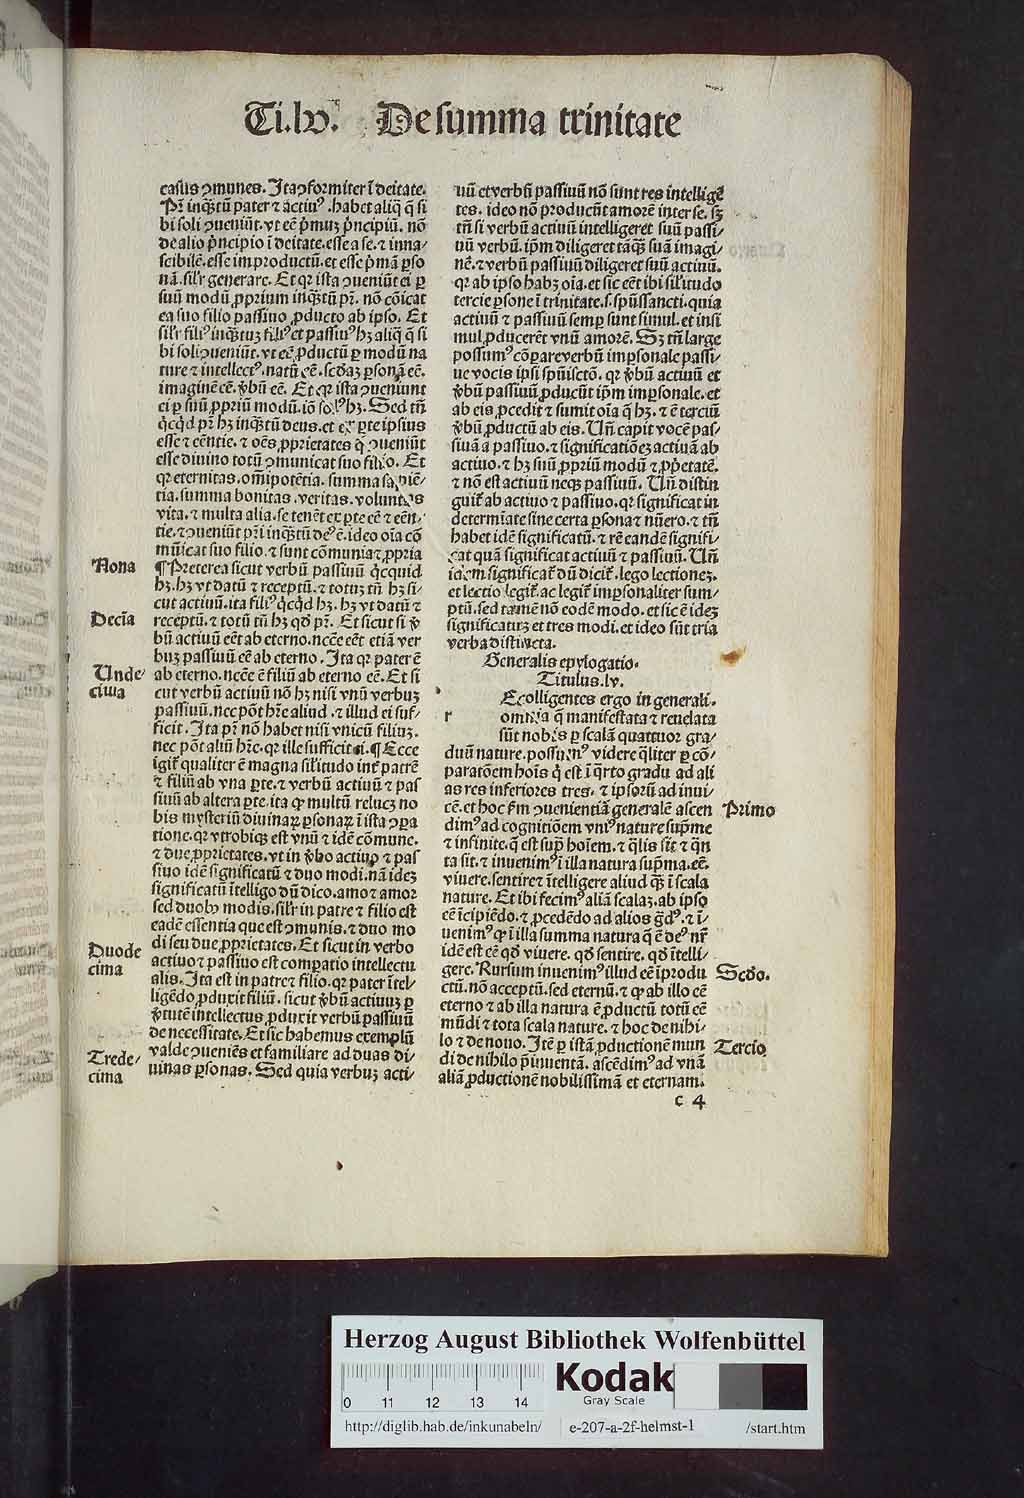 Ti.lv. De summa trinitate
casus ꝯmunes. Ita ꝯformiter ī deitate.
Pr̄ inqȝtū pater ⁊ actiuꝰ .habet aliq̄ q̄ si
bi soli ꝯueniūt. vt eē pͥmuȝ pͥncipiū. nō
de alio pͥncipio ī deitate. esse a se. ⁊ inna⸗
scibilē. esse improductū. et esse pͥmā ꝑso
nā. silr̄ generare. Et qꝛ ista ꝯueniūt ei ꝑ
suū modū ꝓprium inqȝtū pr̄. nō cōicat
ea suo filio passiuo ꝓducto ab ipso. Et
silr̄ filiꝰ inqȝtuȝ filiꝰ et passiuꝰ hȝ aliq̄ q̄ si
bi soli ꝯueniūt. vt eē ꝓductū ꝑ modū na
ture ⁊ intellectꝰ. natū eē. scd̄aȝ ꝑsonā eē.
imaginē eē. v̄bū eē. Et qꝛ ista ꝯueniunt
ei ꝑ suū ꝓpriū modū. iō solꝰ hȝ. Sed tn̄
qͥcqͥd pr̄ hȝ inqȝtū deus. et ex ꝑte ipsius
esse ⁊ eēntie. ⁊ oēs ꝓprietates q̄ ꝯueniūt
esse diuino totū ꝯmunicat suo filio. Et
qꝛ eternitas. om̄ipotētia. summa sapiē⸗
tia. summa bonitas. veritas. voluntas
vita. ⁊ multa alia. se tenēt ex ꝑte eē ⁊ eēn⸗
tie. ⁊ ꝯueniūt pr̄i inqȝtū deꝰ ē. ideo oīa cō
mūicat suo filio. ⁊ sunt cōmunia ⁊ ꝓpria
Nona
¶ Preterea sicut verbū passiuū qͥcquid
hȝ. hȝ vt datū ⁊ receptū. ⁊ totuȝ tn̄ hȝ si⸗
cut actiuū. ita filiꝰ qͥcqͥd hȝ. hȝ vt datū ⁊
Decīa
receptū. ⁊ totū tn̄ hȝ qd̄ pr̄. Et sicut si v̄
bū actiuū eēt ab eterno. nccē eēt etiā ver
buȝ passiuū eē ab eterno. Ita qꝛ pater ē
Unde⸗
cima
ab eterno. nccē ē filiū ab eterno eē. Et si
cut verbū actiuū nō hȝ nisi vnū verbuȝ
passiuū. nec pōt hr̄e aliud. ⁊ illud ei suf⸗
ficit. Ita pr̄ nō habet nisi vnicū filiuȝ.
nec pōt aliū hr̄e. qꝛ ille sufficit ei. ¶ Ecce
igit̄ qualiter ē magna silitudo int̄ patrē
⁊ filiū ab vna ꝑte. ⁊ verbū actiuū ⁊ pas
siuū ab altera ꝑte. ita ꝙ multū relucȝ no
bis mysteriū diuinaꝝ ꝑsonaꝝ ī ista ꝯꝑa
tione. qꝛ vtrobiqȝ est vnū ⁊ idē cōmune.
⁊ due ꝓprietates. vt in v̄bo actiuo ⁊ pas
siuo idē significatū ⁊ duo modi. nā ideȝ
significatū ītelligo dū dico. amo ⁊ amor
sed duobꝰ modis. silr̄ in patre ⁊ filio est
eadē essentia que est ꝯmunis. ⁊ duo mo
Duode
cima
di seu due ꝓprietates. Et sicut in verbo
actiuo ⁊ passiuo est comꝑatio intellectu
alis. Ita est in patre ⁊ filio. qꝛ pater ītel⸗
ligēdo ꝓduxit filiū. sicut v̄bū actiuuȝ ꝑ
v̄tutē intellectus ꝓduxit verbū passiuū
de necessitate. Et sic habemus exemplū
Trede⸗
cima
valde ꝯueniēs et familiare ad duas di⸗
uinas ꝑsonas. Sed quia verbuȝ acti⸗
uū et verbū passiuū nō sunt res intelligē
tes. ideo nō producūt amorē inter se. sȝ
tn̄ si verbū actiuū intelligeret suū passi⸗
uū verbū. ip̄m diligeret tāqȝ suā imagi⸗
nē. ⁊ verbū passiuū diligeret suū actiuū.
qꝛ ab ipso habȝ oīa. et sic eēt ibi silitudo
tercie ꝑsone ī trinitate. s. spūssancti. quia
actiuū ⁊ passiuū semꝑ sunt simul. et insi
mul ꝓducerēt vnū amorē. Sȝ tn̄ large
possumꝰ cōꝑare verbū imꝑsonale passi⸗
ue vocis ipsi spūiscto. qꝛ v̄bū actiuū et
v̄bū passiuū ꝓducūt ip̄m imꝑsonale. et
ab eis ꝓcedit ⁊ sumit oīa q̄ hȝ. ⁊ ē terciū
v̄bū ꝓductū ab eis. Un̄ capit vocē pas⸗
siuā a passiuo. ⁊ significatiōeȝ actiuā ab
actiuo. ⁊ hȝ suū ꝓpriū modū ⁊ ꝓpͥetatē.
⁊ nō est actiuū neqȝ passiuū. Un̄ distin
guit̄ ab actiuo ⁊ passiuo. qꝛ significat in
determīate sine certa ꝑsona ⁊ nūero. ⁊ tn̄
habet idē significatū. ⁊ rē eandē signifi⸗
cat quā significat actiuū ⁊ passiuū. Un̄
idem significat̄ dū dicit̄. lego lectioneȝ.
et lectio legit̄. ac legit̄ imꝑsonaliter sum⸗
ptū. sed tamē nō eodē modo. et sic ē ideȝ
significatuȝ et tres modi. et ideo sūt tria
verba distincta.
Generalis epylogatio.
Titulus.lv.
r
Ecolligentes ergo in generali.
omnia q̄ manifestata ⁊ reuelata
sūt nobis ꝑ scalā quattuor gra⸗
duū nature. possumꝰ videre qͣliter ꝑ cō⸗
paratōem hoīs qͥ est ī qͣrto gradu ad ali
as res inferiores tres. ⁊ ipsorū ad inui⸗
Primo
cē. et hoc ẜm ꝯuenientiā generalē ascen
dimꝰ ad cognitiōem vniꝰ nature supͥme
⁊ infinite. q̄ est supͣ hoīem. ⁊ qͣlis sit̄ ⁊ qͣn
ta sit. ⁊ inuenimꝰ ī illa natura supͥma. eē.
viuere. sentire ⁊ ītelligere aliud qȝ ī scala
nature. Et ibi fecimꝰ aliā scalaȝ. ab ipso
eē īcipiēdo. ⁊ ꝓcedēdo ad alios gͣdꝰ. ⁊ ī⸗
uenimꝰ ꝙ ī illa summa natura q̄ ē deꝰ nr̄
idē est eē qd̄ viuere. qd̄ sentire. qd̄ ītelli⸗
Scd̄o.
gere. Rursum inuenimꝰ illud eē īprodu
ctū. nō acceptū. sed eternū. ⁊ ꝙ ab illo eē
eterno ⁊ ab illa natura ē ꝓductū totū eē
mūdi ⁊ tota scala nature. ⁊ hoc de nihi⸗
Tercio
lo ⁊ de nouo. Itē ꝑ istā ꝓductionē mun
di de nihilo p̄inuentā. ascēdimꝰ ad vnā
aliā ꝓductionē nobilissimā et eternam.
c 4
Herzog August Bibliothek Wolfenbüttel
0 11 12 13 14
Kodak
Gray Scale
http://diglib.hab.de/inkunabeln/ e-207-a-2f-helmst-1 /start.htm